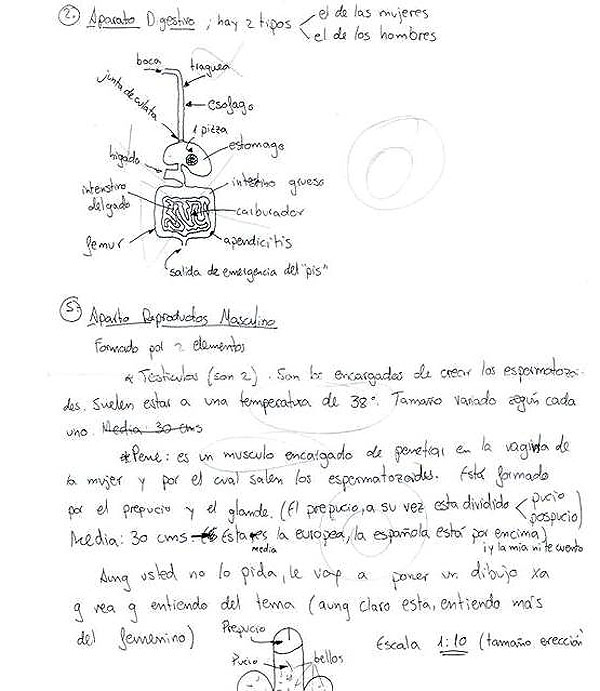 2. Aparato Digestivo, hay 2 tipos
el de las mujeres
el de los hombres
boca
traquea
junta de culata
esofago
1 pizza
estomago
higado
intestino grueso
intenstivo delgado
carburador
femur
apendicitis
salida de emergencia del "pis"
5. Aparto Reproductos Masculino
Formado por 2 elementos
* Testiculos (son 2). Son los encargados de crear los espermatozoi-
des. Suelen estar a una temperatura de 38º. Tamaño variado según cada
uno. Media: 30 cms
* Pene: es un musculo encargado de penetrar en la vagina de
la mujer y por el cual salen los espermatozoides. Está formado
por el prepucio y el glande. (El prepucio, a su vez esta dividido
pucio
pospucio)
Media: 30 cms Esta es la europea, la española está por encima)
media
¡y la mia ni te cuento
Aunq usted no lo pida, le voy a poner un dibujo xa
q vea q entiendo del tema (aunq claro esta, entiendo más
del femenino)
Prepucio
Pucio
bellos
Escala 1:10 (tamaño erección